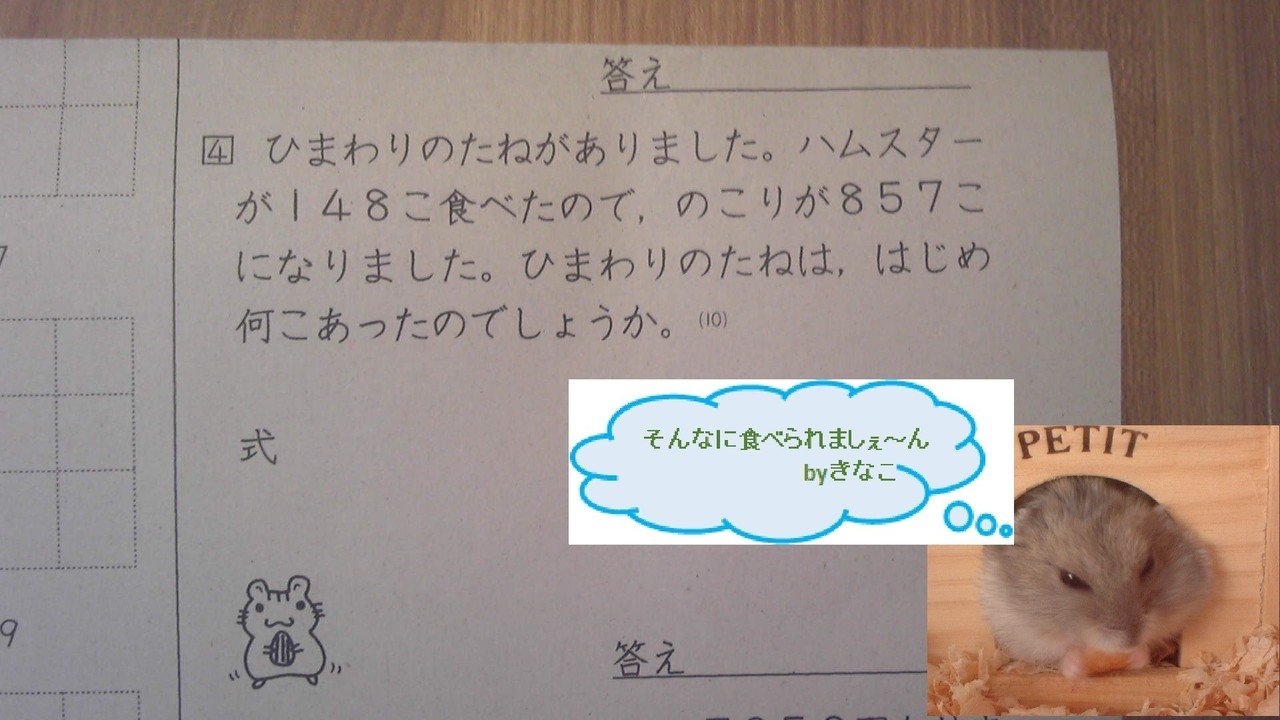 答え
4 ひまわりのたねがありました。ハムスター
が148こ食べたので,のこりが857こ
になりました。ひまわりのたねは,はじめ
何こあったのでしょうか。(10)
そんなに食べられましぇ～ん
byきなこ
PETIT
式
答え
7
9